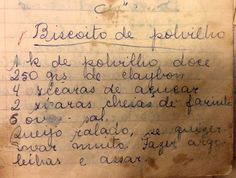 Biscoito de polvilho
1 k de polvilho doce
250 grs de claybon
4 xicaras de açucar
2 xicaras cheias de farinha
6 ovos. sal.
Queijo ralado, se quizer
sovar muito, fazer argo-
linhas e assar.